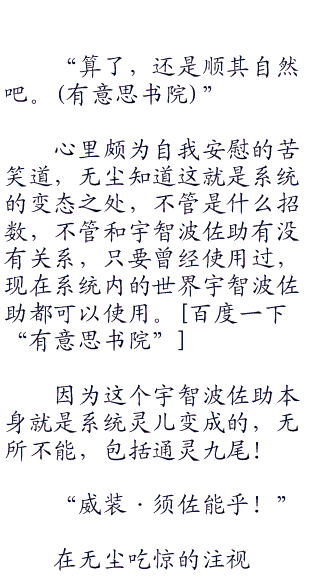 “算了，还是顺其自然
吧。(有意思书院)”
心里颇为自我安慰的苦
笑道，无尘知道这就是系统
的变态之处，不管是什么招
数，不管和宇智波佐助有没
有关系，只要曾经使用过，
现在系统内的世界宇智波佐
助都可以使用。[百度一下
“有意思书院”]
因为这个宇智波佐助本
身就是系统灵儿变成的，无
所不能，包括通灵九尾！
“威装·须佐能乎！”
在无尘吃惊的注视